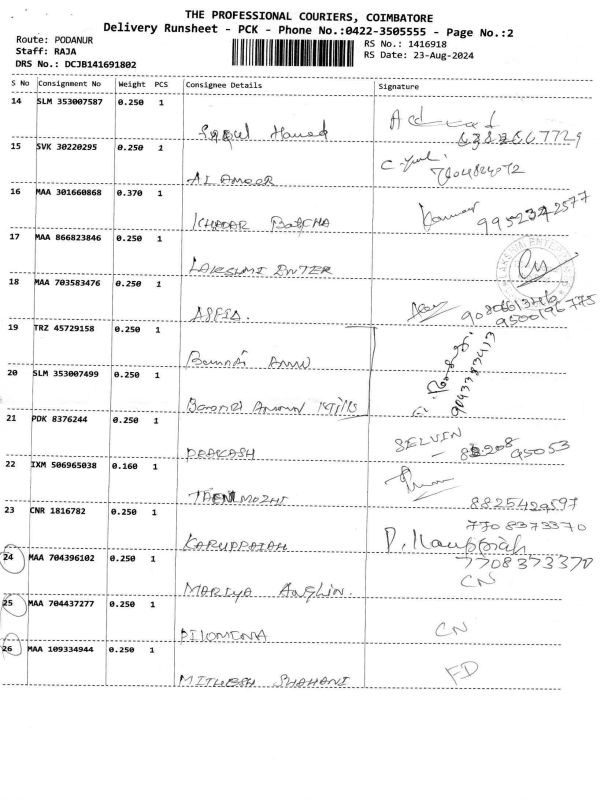 THE PROFESSIONAL COURIERS, COIMBATORE
Delivery Runsheet - PCK - Phone No.:0422-3505555 - Page No.:2
Route: PODANUR
Staff: RAJA
DRS No.: DCJB141691802
RS No.: 1416918
RS Date: 23-Aug-2024
S No Consignment No Weight PCS Consignee Details Signature
14 SLM 353007587 0.250 1
6382667729
15 SVK 30220295 0.250 1
AL AMEER
16 MAA 301660868 0.370 1
KHADAR BASCHA
9952342577
17 MAA 866823846 0.250 1
LAKSHMI ENTER
18 MAA 703583476 0.250 1
ASFIA.
9500196775
19 TRZ 45729158 0.250 1
20 SLM 353007499 0.250 1
21 PDK 8376244 0.250 1
PRAKASH
SELVIN
95053
22 IXM 506965038 0.160 1
THENMOZHI
8825429597
23 CNR 1816782 0.250 1
7708373370
KARUPPAIAH
7708373370
24 MAA 704396102 0.250 1
MARIYA Anglin.
CN
25 MAA 704437277 0.250 1
PILOMINA
CN
26 MAA 109334944 0.250 1
MITHESH SHAHANI
FD